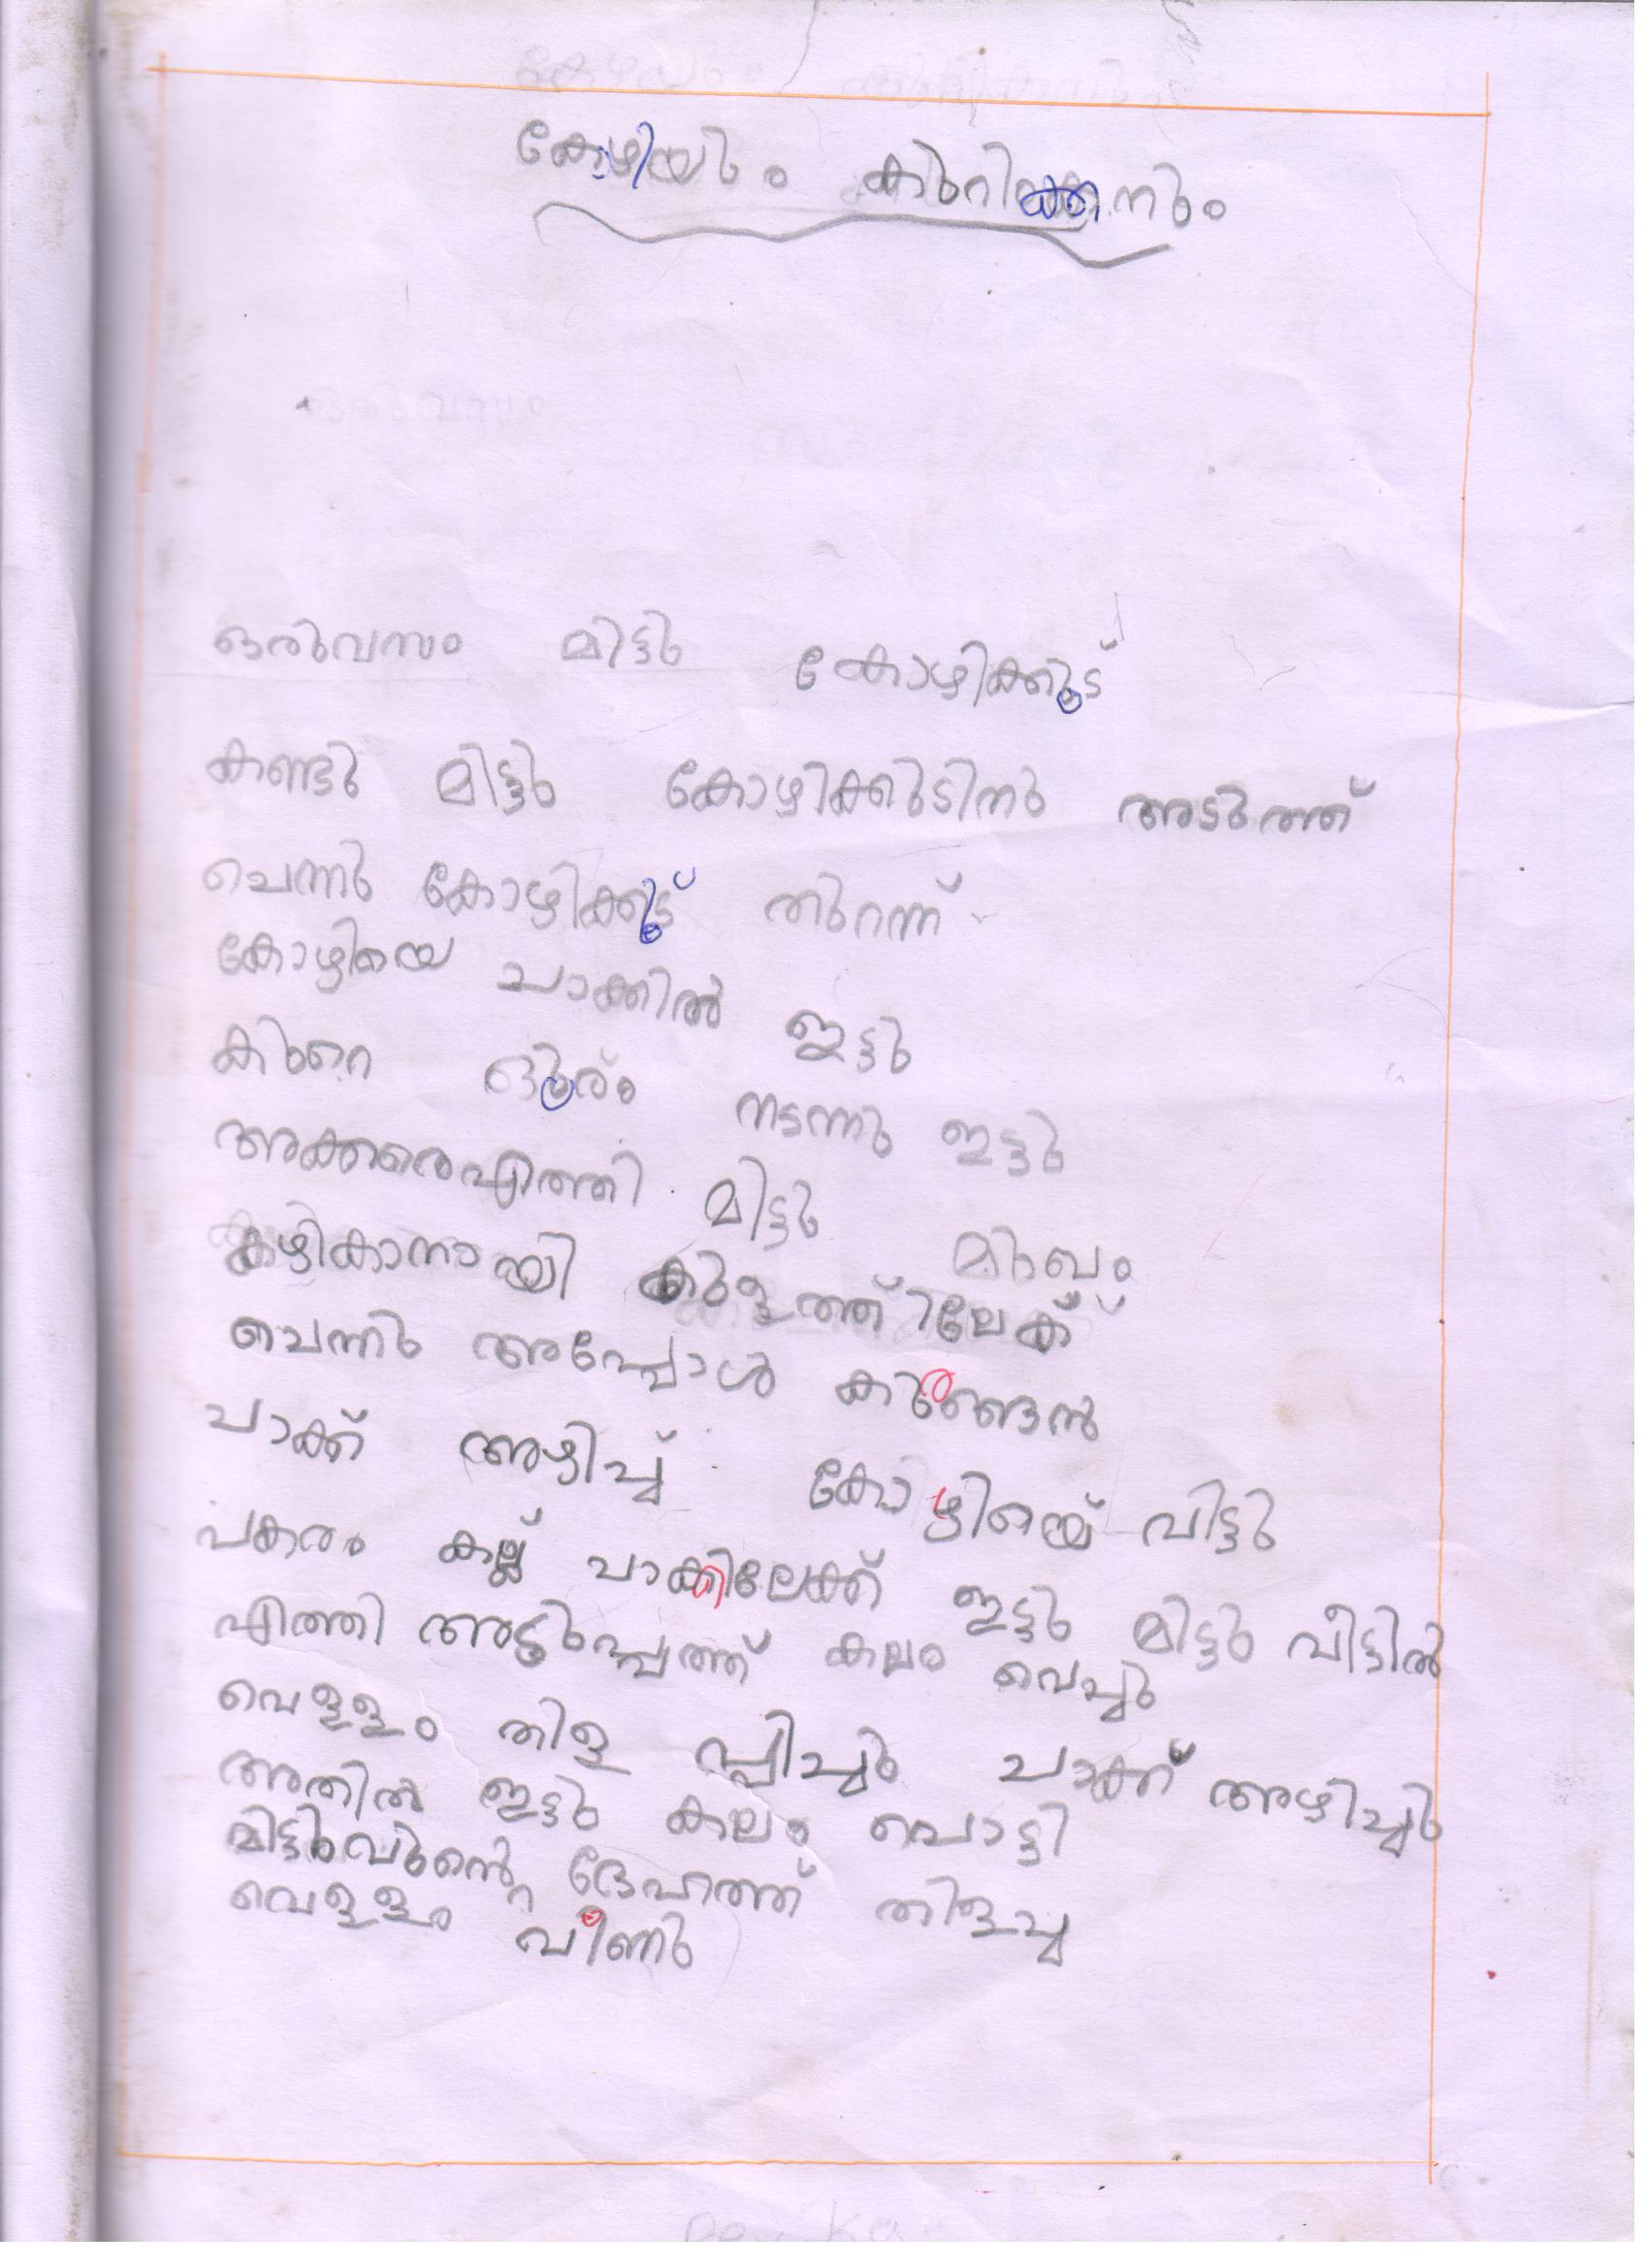 കോഴിയും കുറിക്കനും
ഒരുവസം മിട്ടു കോഴിക്കൂട്
കണ്ടു മിട്ടു കോഴിക്കുടിനു അടുത്ത്
ചെന്നു കോഴിക്കൂട് തുറന്ന്
കോഴിയെ ചാക്കിൽ ഇട്ടു
കുറെ ദൂരം നടന്നു ഇട്ടു
അക്കരെഎത്തി മിട്ടു മുഖം
കഴികാനായി കുളത്ത്ിലേക്ക്
ചെന്നു അപ്പോൾ കുരങ്ങൻ
ചാക്ക് അഴിച്ച് കോഴിയെ വിട്ടു
പകരം കല്ല് ചാക്കിലേക്ക് ഇട്ടു മിട്ടു വീട്ടിൽ
എത്തി അടുപ്പത്ത് കലം വെച്ചു
വെള്ളം തിള പ്പിച്ചു ചാക്ക് അഴിച്ചു
അതിൽ ഇട്ടു കലം പൊട്ടി
മിട്ടുവുന്റെ ദേഹത്ത് തിളച്ച
വെള്ളം വീണു